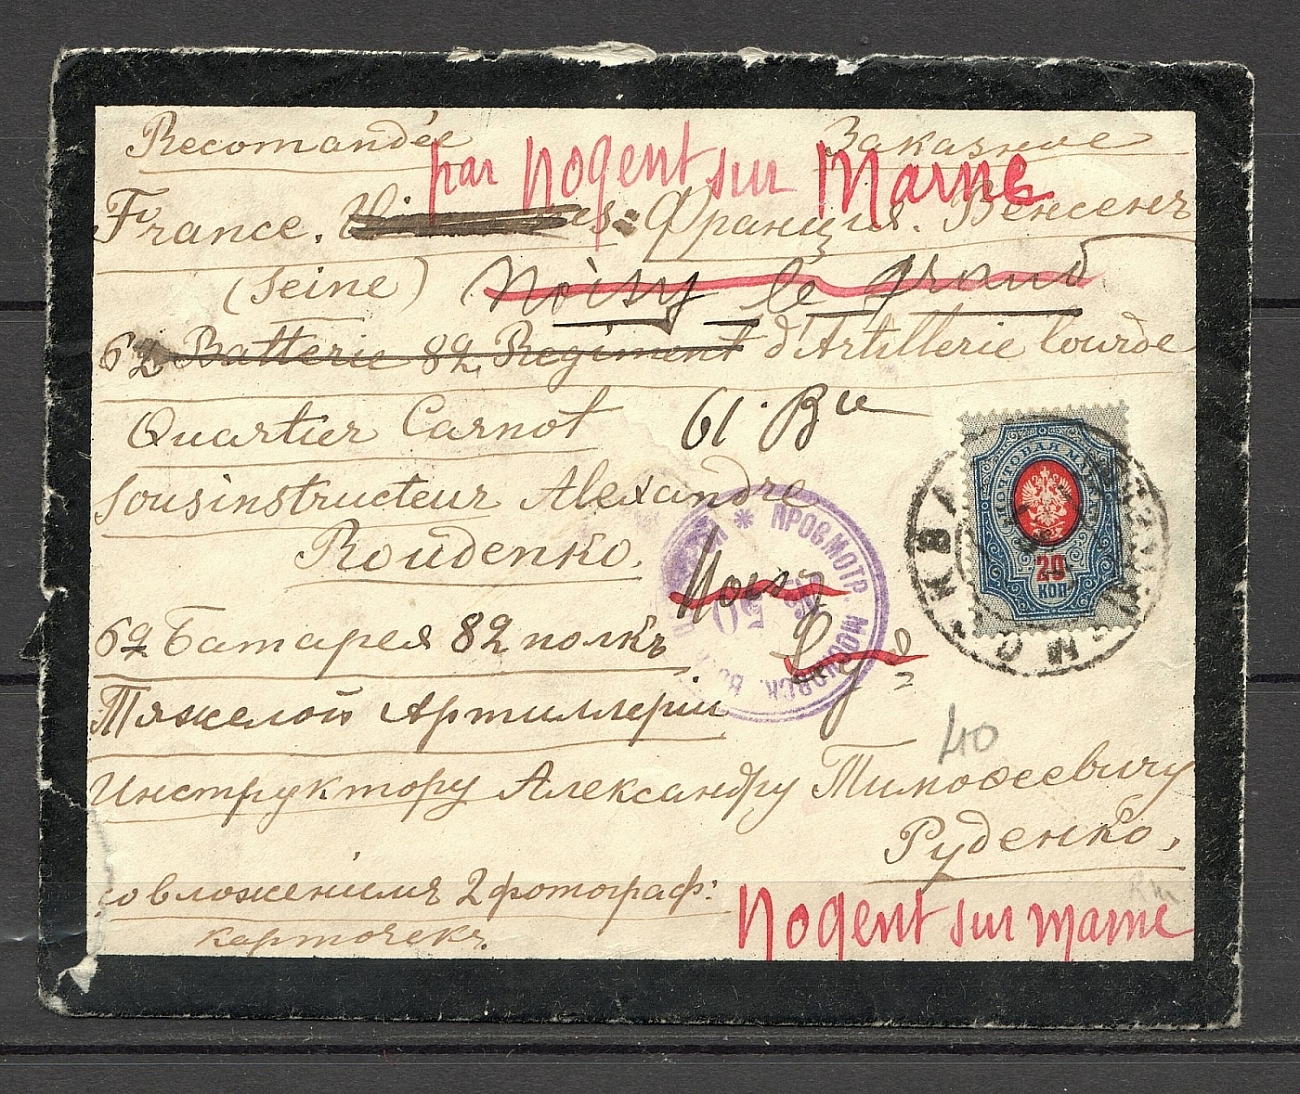 Recomandée Заказное
par Nogent sur Marne
France. Франція. Венсенъ
(Seine) Noisy le grand
62 Batterie 82 Regiment d'Artillerie lourde
Quartier Carnot 61. Bie
sousinstructeur Alexandre
Roudenko.
62 Батарея 82 полкъ
Тяжелой Артиллеріи
Инструктору Александру Тимофеевичу
Руденко,
со вложеніемъ 2 фотограф:
карточекъ.
Nogent sur marne
40
ПРОСМОТР. МОСКОВСК. ВОЕН.
50
МОСКВА
ПОЧТОВАЯ МАРКА
20
КОП